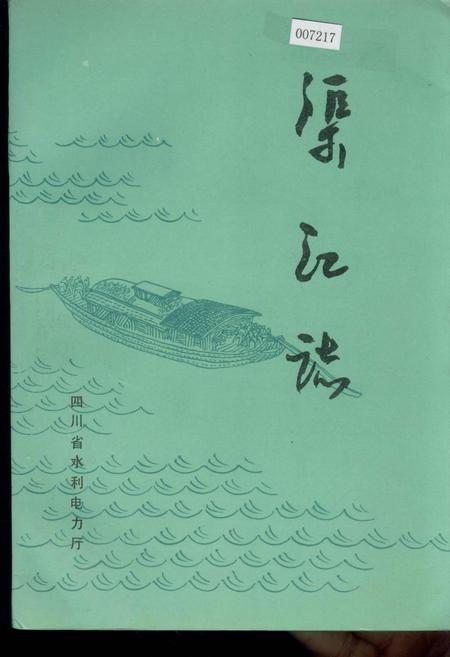 007217
渠江志
四川省水利电力厅